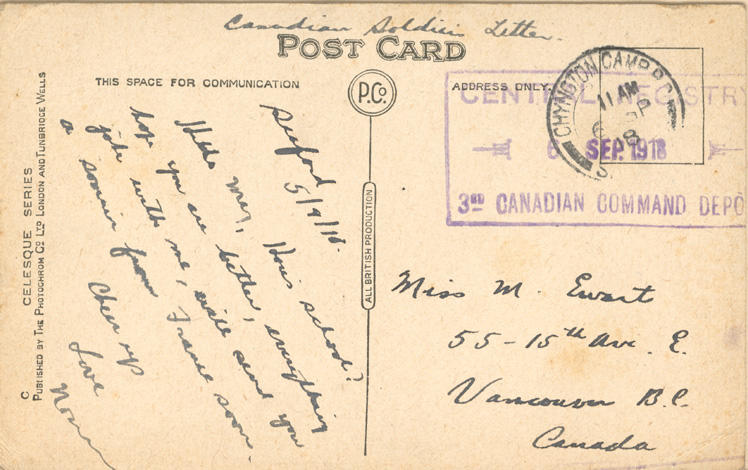 Canadian Soldiers Letter.
POST CARD
THIS SPACE FOR COMMUNICATION
P.Co.
ADDRESS ONLY.
CHYNGTON CAMP
11 AM
6 SP
18
CENTRAL REGISTRY
6 SEP. 1918
3RD CANADIAN COMMAND DEPÔ
Seaford
5/9/18.
Hello May, Hows school?
Hope you are better, everything
jake with me, will send you
a souvenir from France soon.
Cheer up
Love
Norman
ALL BRITISH PRODUCTION
Miss M. Ewart
55-15th Ave. E.
Vancouver B.C.
Canada
C
CELESQUE SERIES
PUBLISHED BY THE PHOTOCHROM CO LTD LONDON AND TUNBRIDGE WELLS